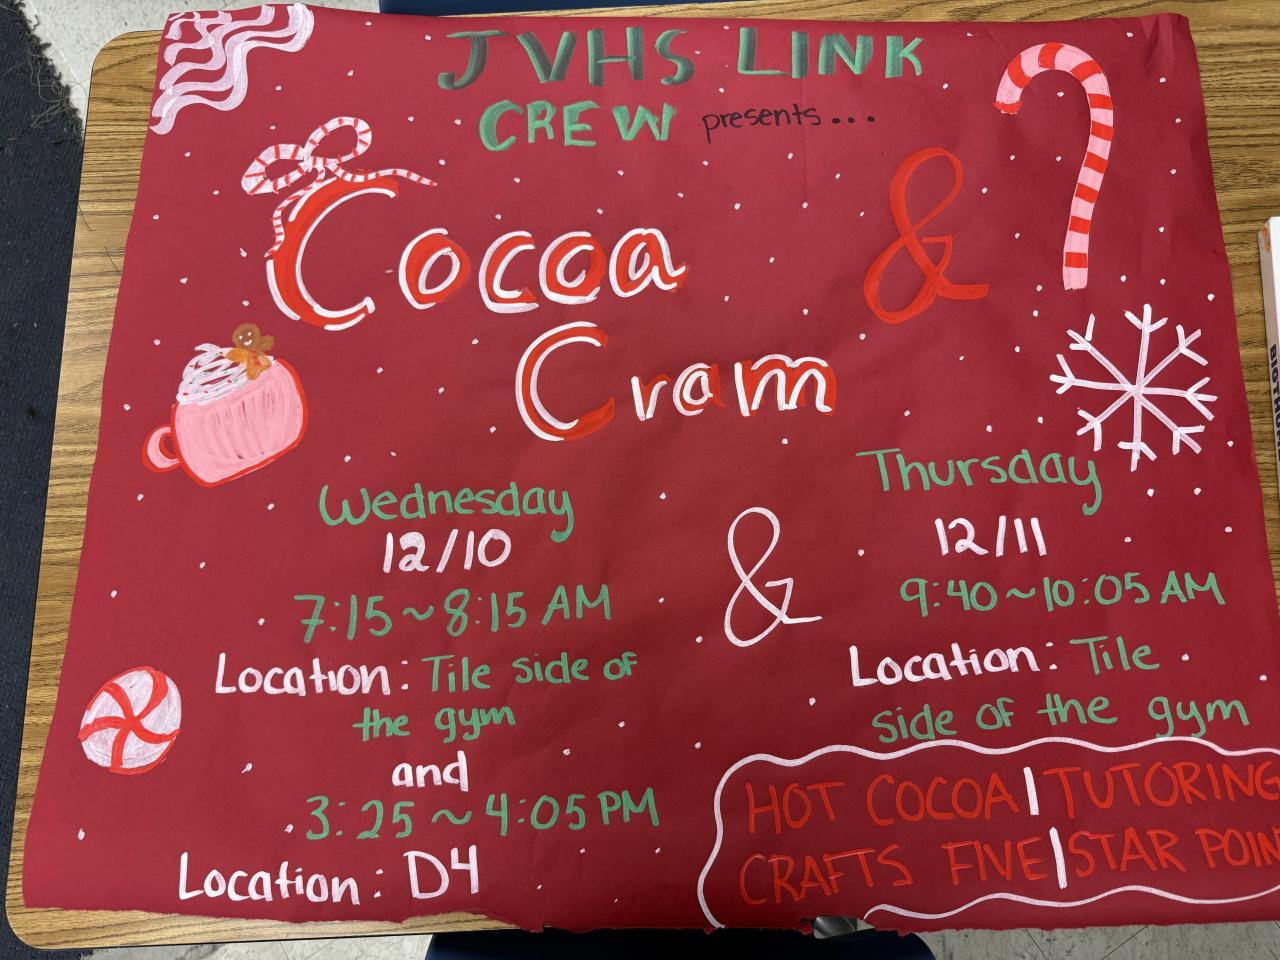 JVHS LINK
CREW presents...
Cocoa &
Cram
Wednesday
12/10
7:15~8:15 AM
Location: Tile side of
the gym
and
3:25~4:05 PM
Location: D4
&
Thursday
12/11
9:40~10:05 AM
Location: Tile
side of the gym
HOT COCOA | TUTORING
CRAFTS FIVE | STAR POIN